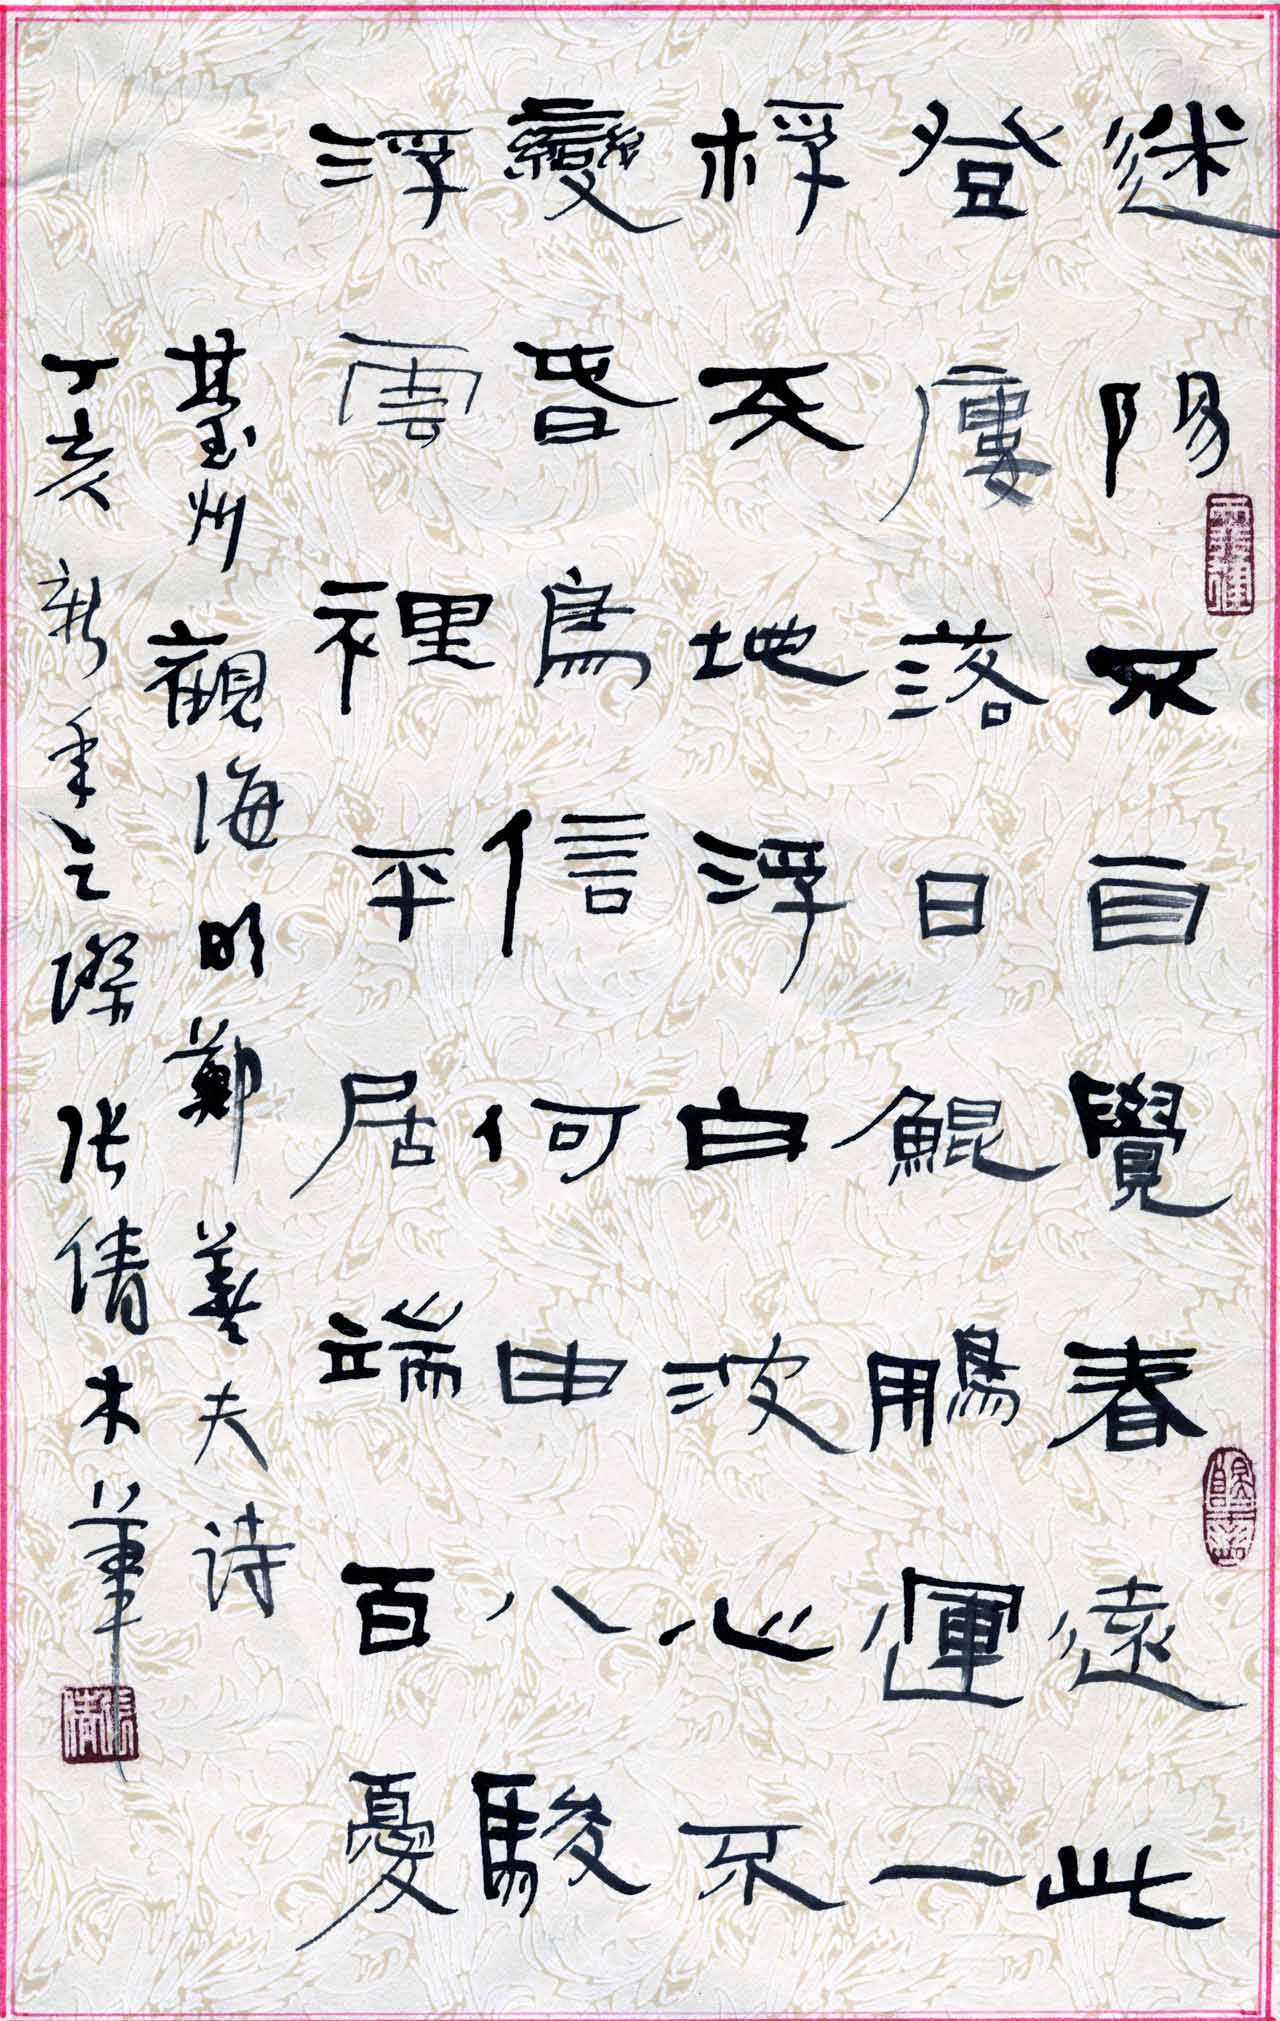 迷陽不自覺春遠此
登廔落日鯤鵬運一
桴天地浮白波心不
變昏鳥信何由八駿
浮雲裡平居端百憂
臺州觀海明鄭善夫詩
丁亥新年之際张倩木筆
张倩